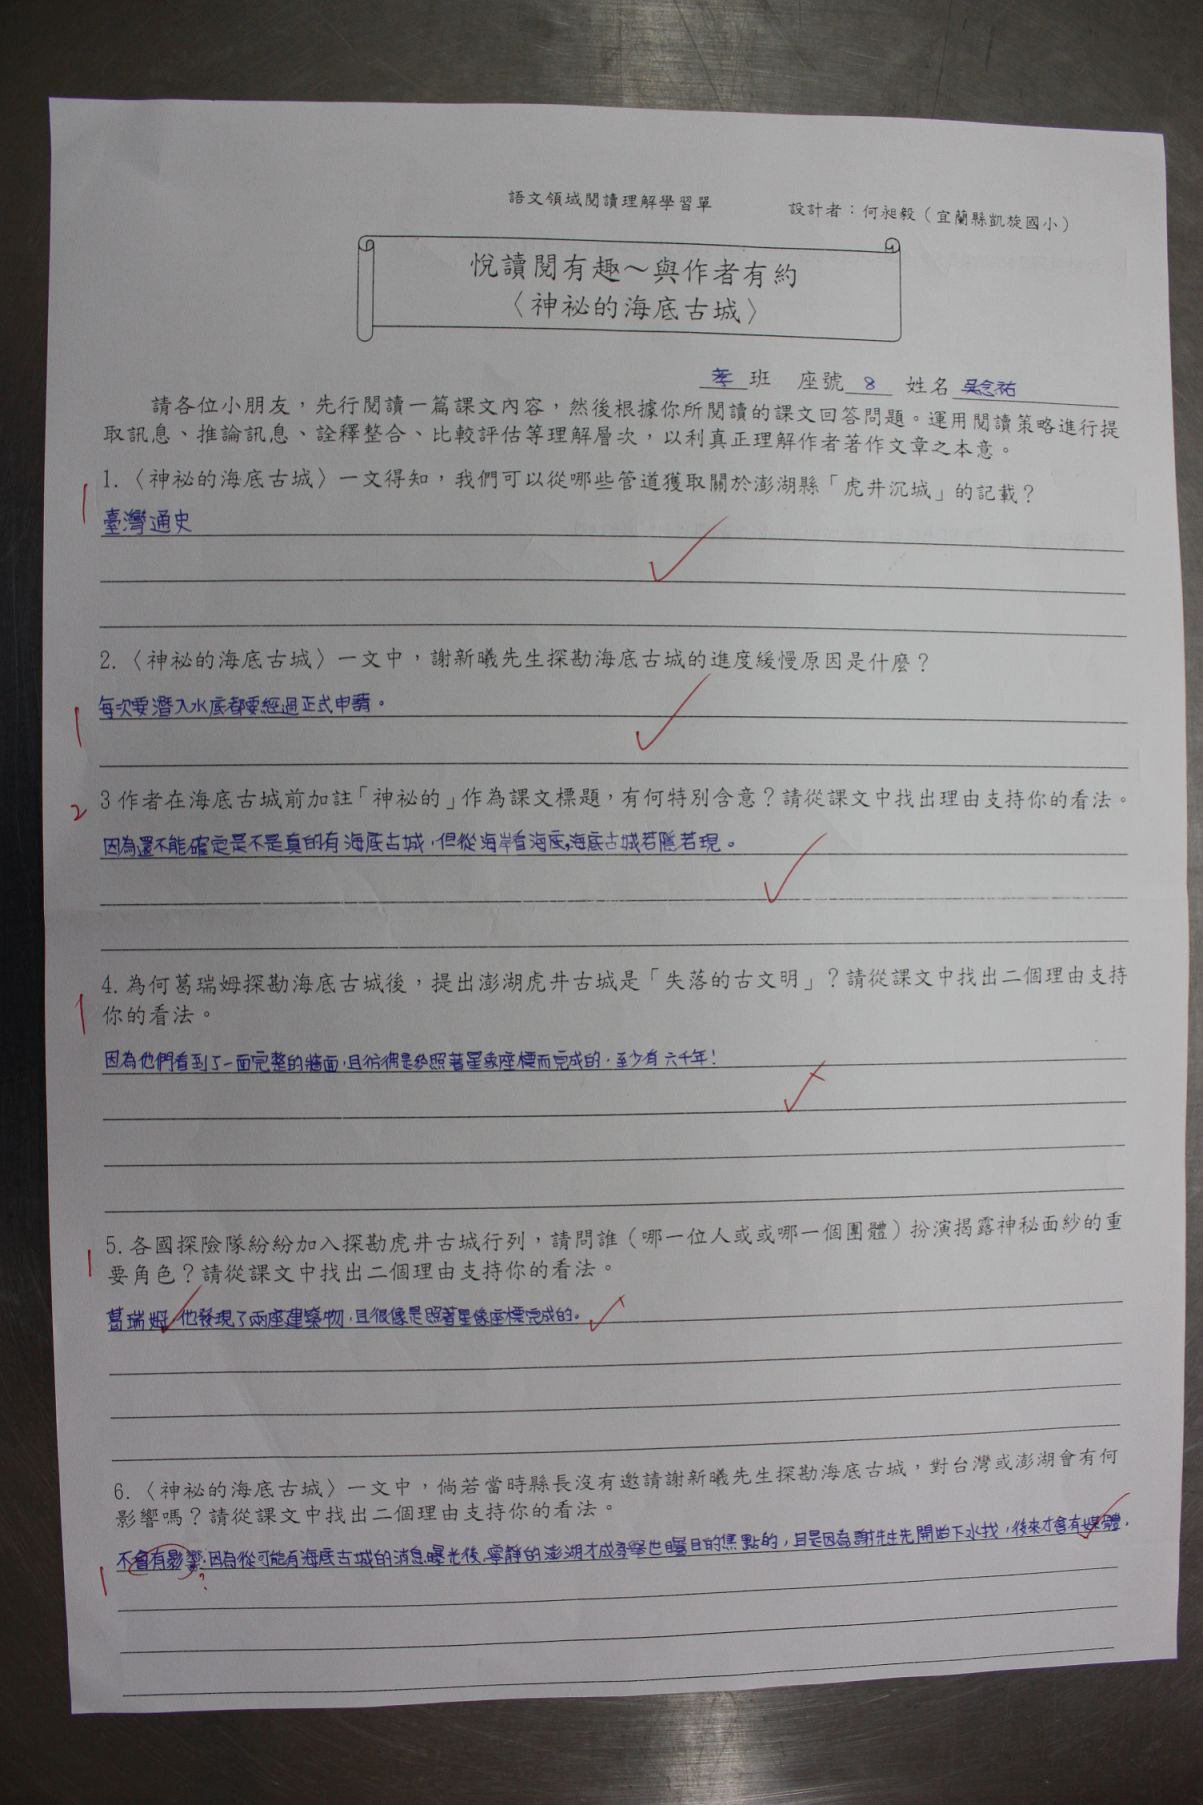 語文領域閱讀理解學習單
設計者：何昶毅（宜蘭縣凱旋國小）
悅讀閱有趣～與作者有約
〈神祕的海底古城〉
孝班 座號 8 姓名 吳念祐
請各位小朋友，先行閱讀一篇課文內容，然後根據你所閱讀的課文回答問題。運用閱讀策略進行提
取訊息、推論訊息、詮釋整合、比較評估等理解層次，以利真正理解作者著作文章之本意。
1 1.〈神祕的海底古城〉一文得知，我們可以從哪些管道獲取關於澎湖縣「虎井沉城」的記載？
臺灣通史
2.〈神祕的海底古城〉一文中，謝新曦先生探勘海底古城的進度緩慢原因是什麼？
1 每次要潛入水底都要經過正式申請。
2 3 作者在海底古城前加註「神祕的」作為課文標題，有何特別含意？請從課文中找出理由支持你的看法。
因為還不能確定是不是真的有海底古城，但從海岸看海底，海底古城若隱若現。
4.為何葛瑞姆探勘海底古城後，提出澎湖虎井古城是「失落的古文明」？請從課文中找出二個理由支持
1 你的看法。
因為他們看到了一面完整的牆面，且彷彿是參照著星象座標而完成的，至少有六千年！
5.各國探險隊紛紛加入探勘虎井古城行列，請問誰（哪一位人或或哪一個團體）扮演揭露神秘面紗的重
1 要角色？請從課文中找出二個理由支持你的看法。
葛瑞姆，他發現了兩座建築物，且很像是照著星像座標完成的。
6.〈神祕的海底古城〉一文中，倘若當時縣長沒有邀請謝新曦先生探勘海底古城，對台灣或澎湖會有何
影響嗎？請從課文中找出二個理由支持你的看法。
不會有影響，因為從可能有海底古城的消息曝光後，寧靜的澎湖才成為舉世矚目的焦點的，且是因為謝先生先開始下水找，後來才會有媒體，
1 ?